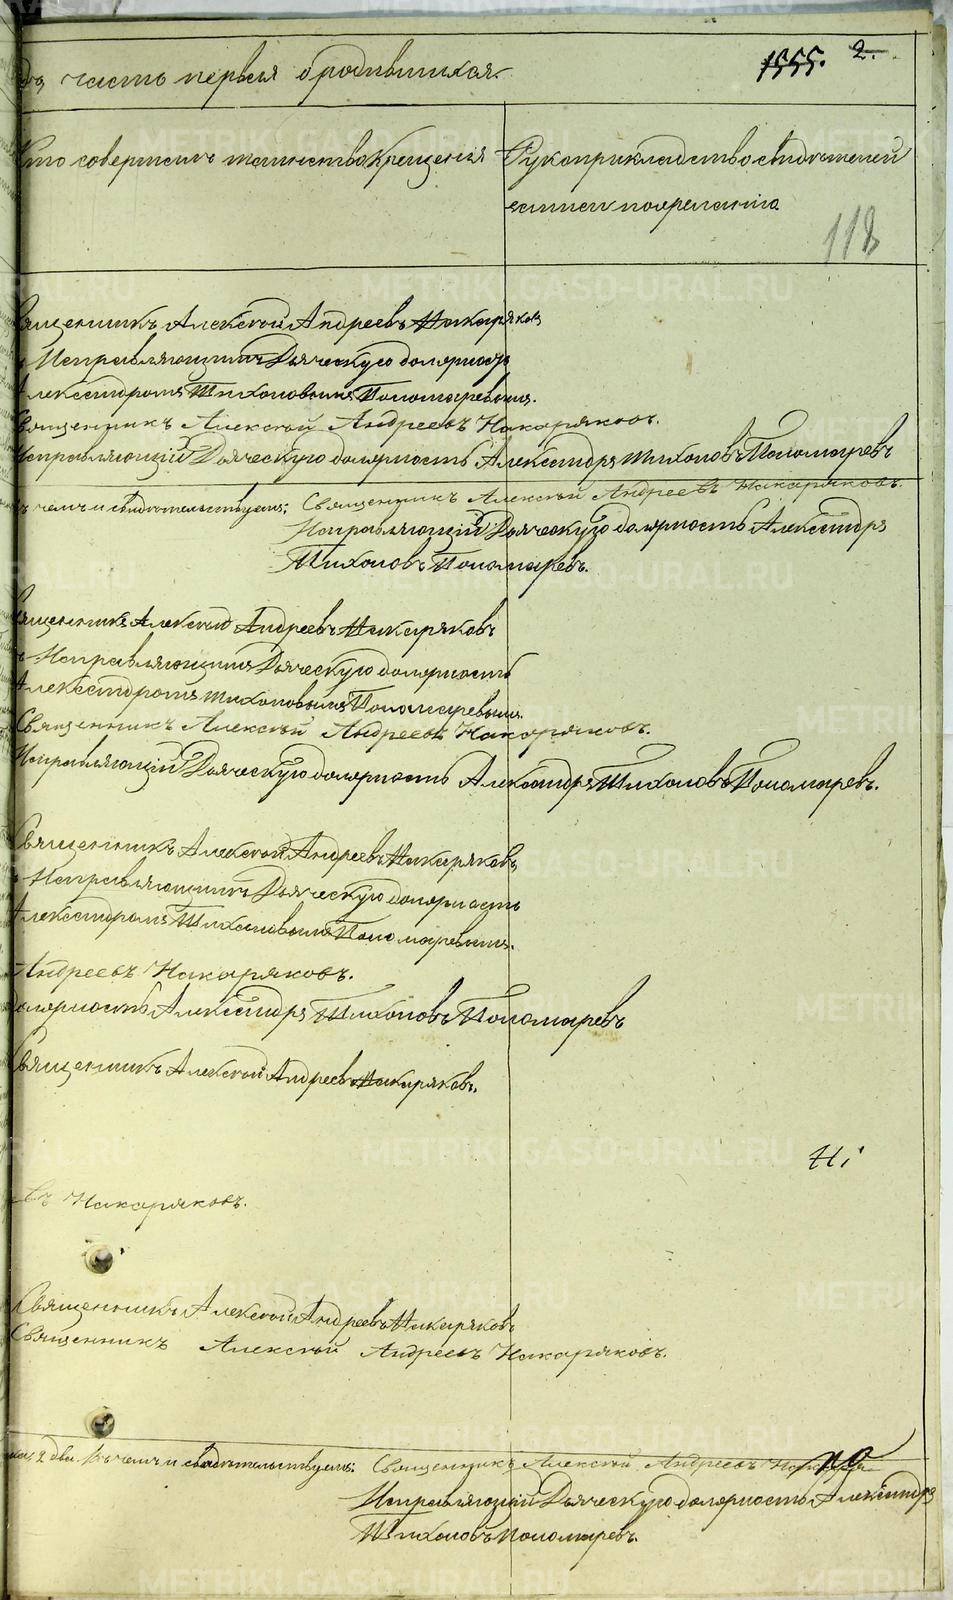 часть первая о родившихся.
1555. 2.
Кто совершалъ таинство крещенія
Рукоприкладство свидѣтелей
записи по желанію.
118
Священникъ Алексѣй Андреевъ Накаряковъ
Исправляющимъ Дьяческую должность
Александромъ Тихоновымъ Пономаревымъ.
Священникъ Алексѣй Андреевъ Накаряковъ.
Исправляющій Дьяческую должность Александръ Тихоновъ Пономаревъ
чемъ и свидѣтельствуемъ: Священникъ Алексѣй Андреевъ Накаряковъ.
Исправляющій Дьяческую должность Александръ
Тихоновъ Пономаревъ.
Священникъ Алексѣй Андреевъ Накаряковъ
съ Исправляющимъ Дьяческую должность
Александромъ Тихоновымъ Пономаревымъ.
Священникъ Алексѣй Андреевъ Накаряковъ.
Исправляющій Дьяческую должность Александръ Тихоновъ Пономаревъ.
Священникъ Алексѣй Андреевъ Накаряковъ,
съ Исправляющимъ Дьяческую должность
Александромъ Тихоновымъ Пономаревымъ.
Андреевъ Накаряковъ.
должность Александръ Тихоновъ Пономаревъ
Священникъ Алексѣй Андреевъ Накаряковъ.
въ Накаряковъ.
Священникъ Алексѣй Андреевъ Накаряковъ
Священникъ Алексѣй Андреевъ Накаряковъ.
2 два. Въ чемъ и свидѣтельствуемъ: Священникъ Алексѣй Андреевъ
Исправляющій Дьяческую должность Александръ
Тихоновъ Пономаревъ.
METRIKI.GASO-URAL.RU